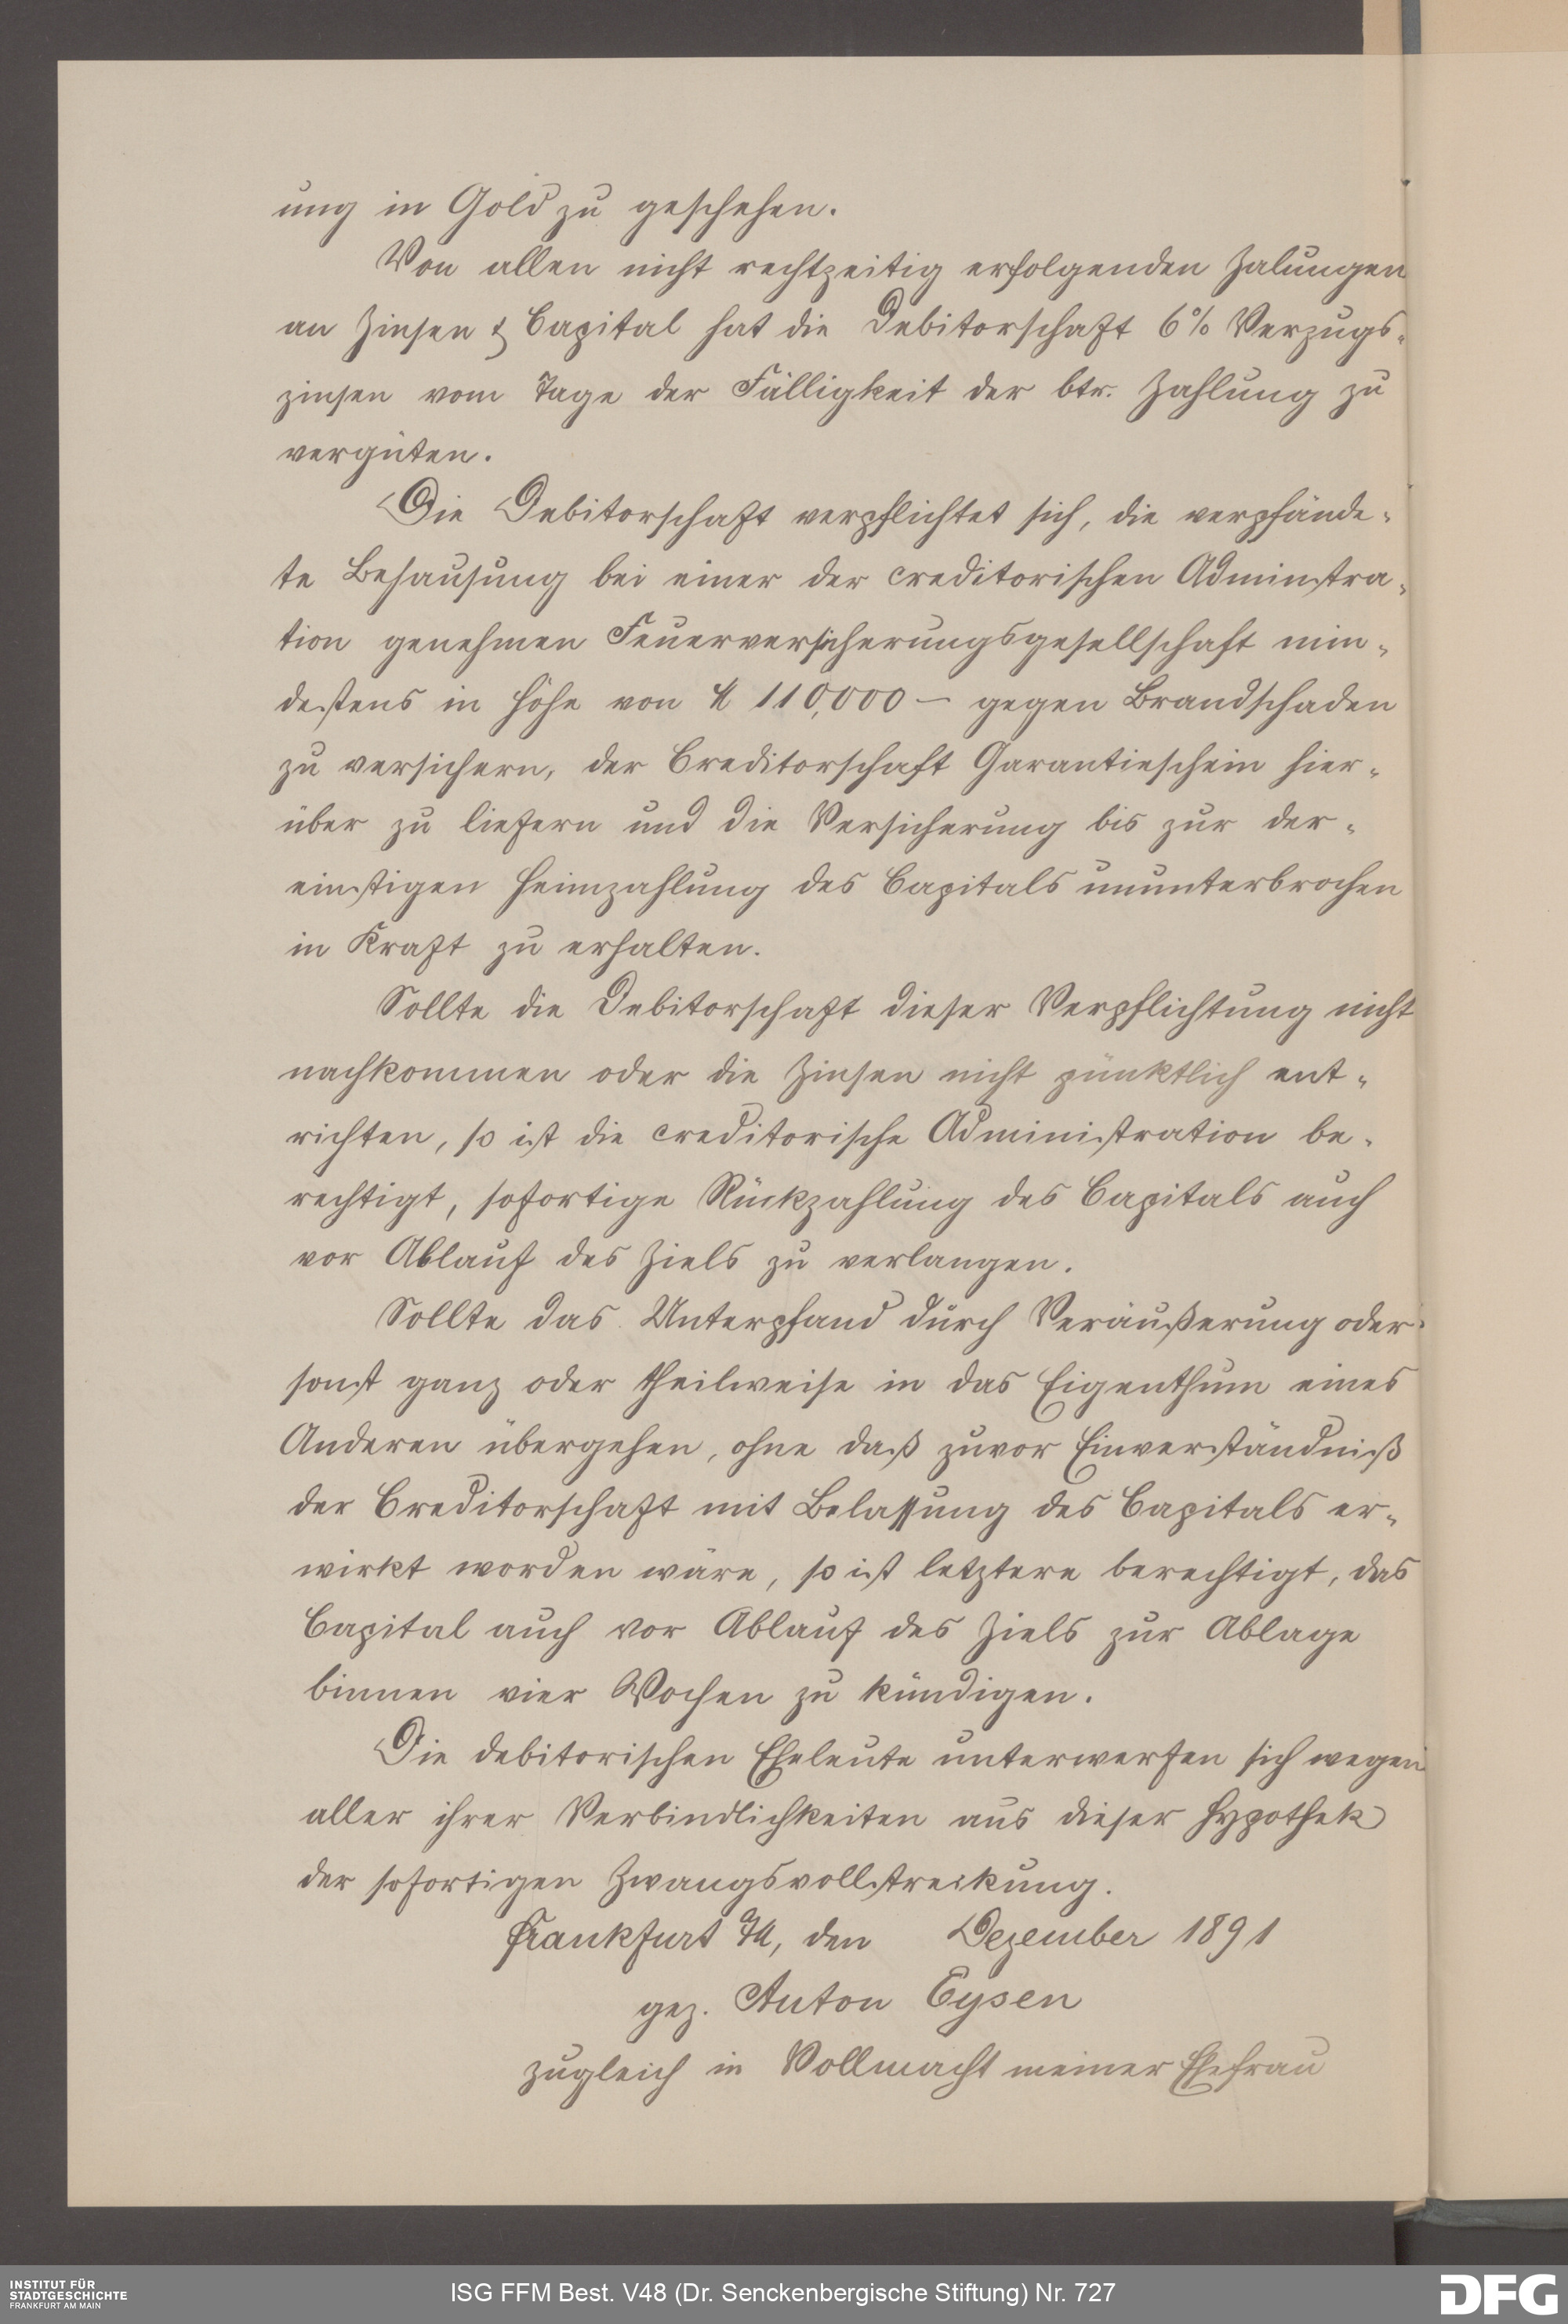 ung in Gold zu geschehen.
Von allen nicht rechtzeitig erfolgenden Zalungen
an Zinsen & Capital hat die Debitorschaft 6% Verzugs-
zinsen vom Tage der Fälligkeit der btr. Zahlung zu
vergüten.
Die Debitorschaft verpflichtet sich, die verpfände-
te Behausung bei einer der creditorischen Adminstra-
tion genehmen Feuerversicherungsgesellschaft min-
destens in Höhe von ℳ 110,000 — gegen Brandschaden
zu versichern, der Creditorschaft Garantieschein hier-
über zu liefern und die Versicherung bis zur der-
einstigen Heimzahlung des Capitals ununterbrochen
in Kraft zu erhalten.
Sollte die Debitorschaft dieser Verpflichtung nicht
nachkommen oder die Zinsen nicht pünktlich ent-
richten, so ist die creditorische Administration be-
rechtigt, sofortige Rückzahlung des Capitals auch
vor Ablauf des Ziels zu verlangen.
Sollte das Unterpfand durch Veräußerung oder
sonst ganz oder theilweise in das Eigenthum eines
Anderen übergehen, ohne daß zuvor Einverständniß
der Creditorschaft mit Belassung des Capitals er-
wirkt worden wäre, so ist letztere berechtigt, das
Capital auch vor Ablauf des Ziels zur Ablage
binnen vier Wochen zu kündigen.
Die debitorischen Eheleute unterwerfen sich wegen
aller ihrer Verbindlichkeiten aus dieser Hypothek
der sofortigen Zwangsvollstreckung.
Frankfurt a/M, den Dezember 1891
gez. Anton Eysen
zugleich in Vollmacht meiner Ehefrau
INSTITUT FÜR
STADTGESCHICHTE
FRANKFURT AM MAIN
ISG FFM Best. V48 (Dr. Senckenbergische Stiftung) Nr. 727
DFG